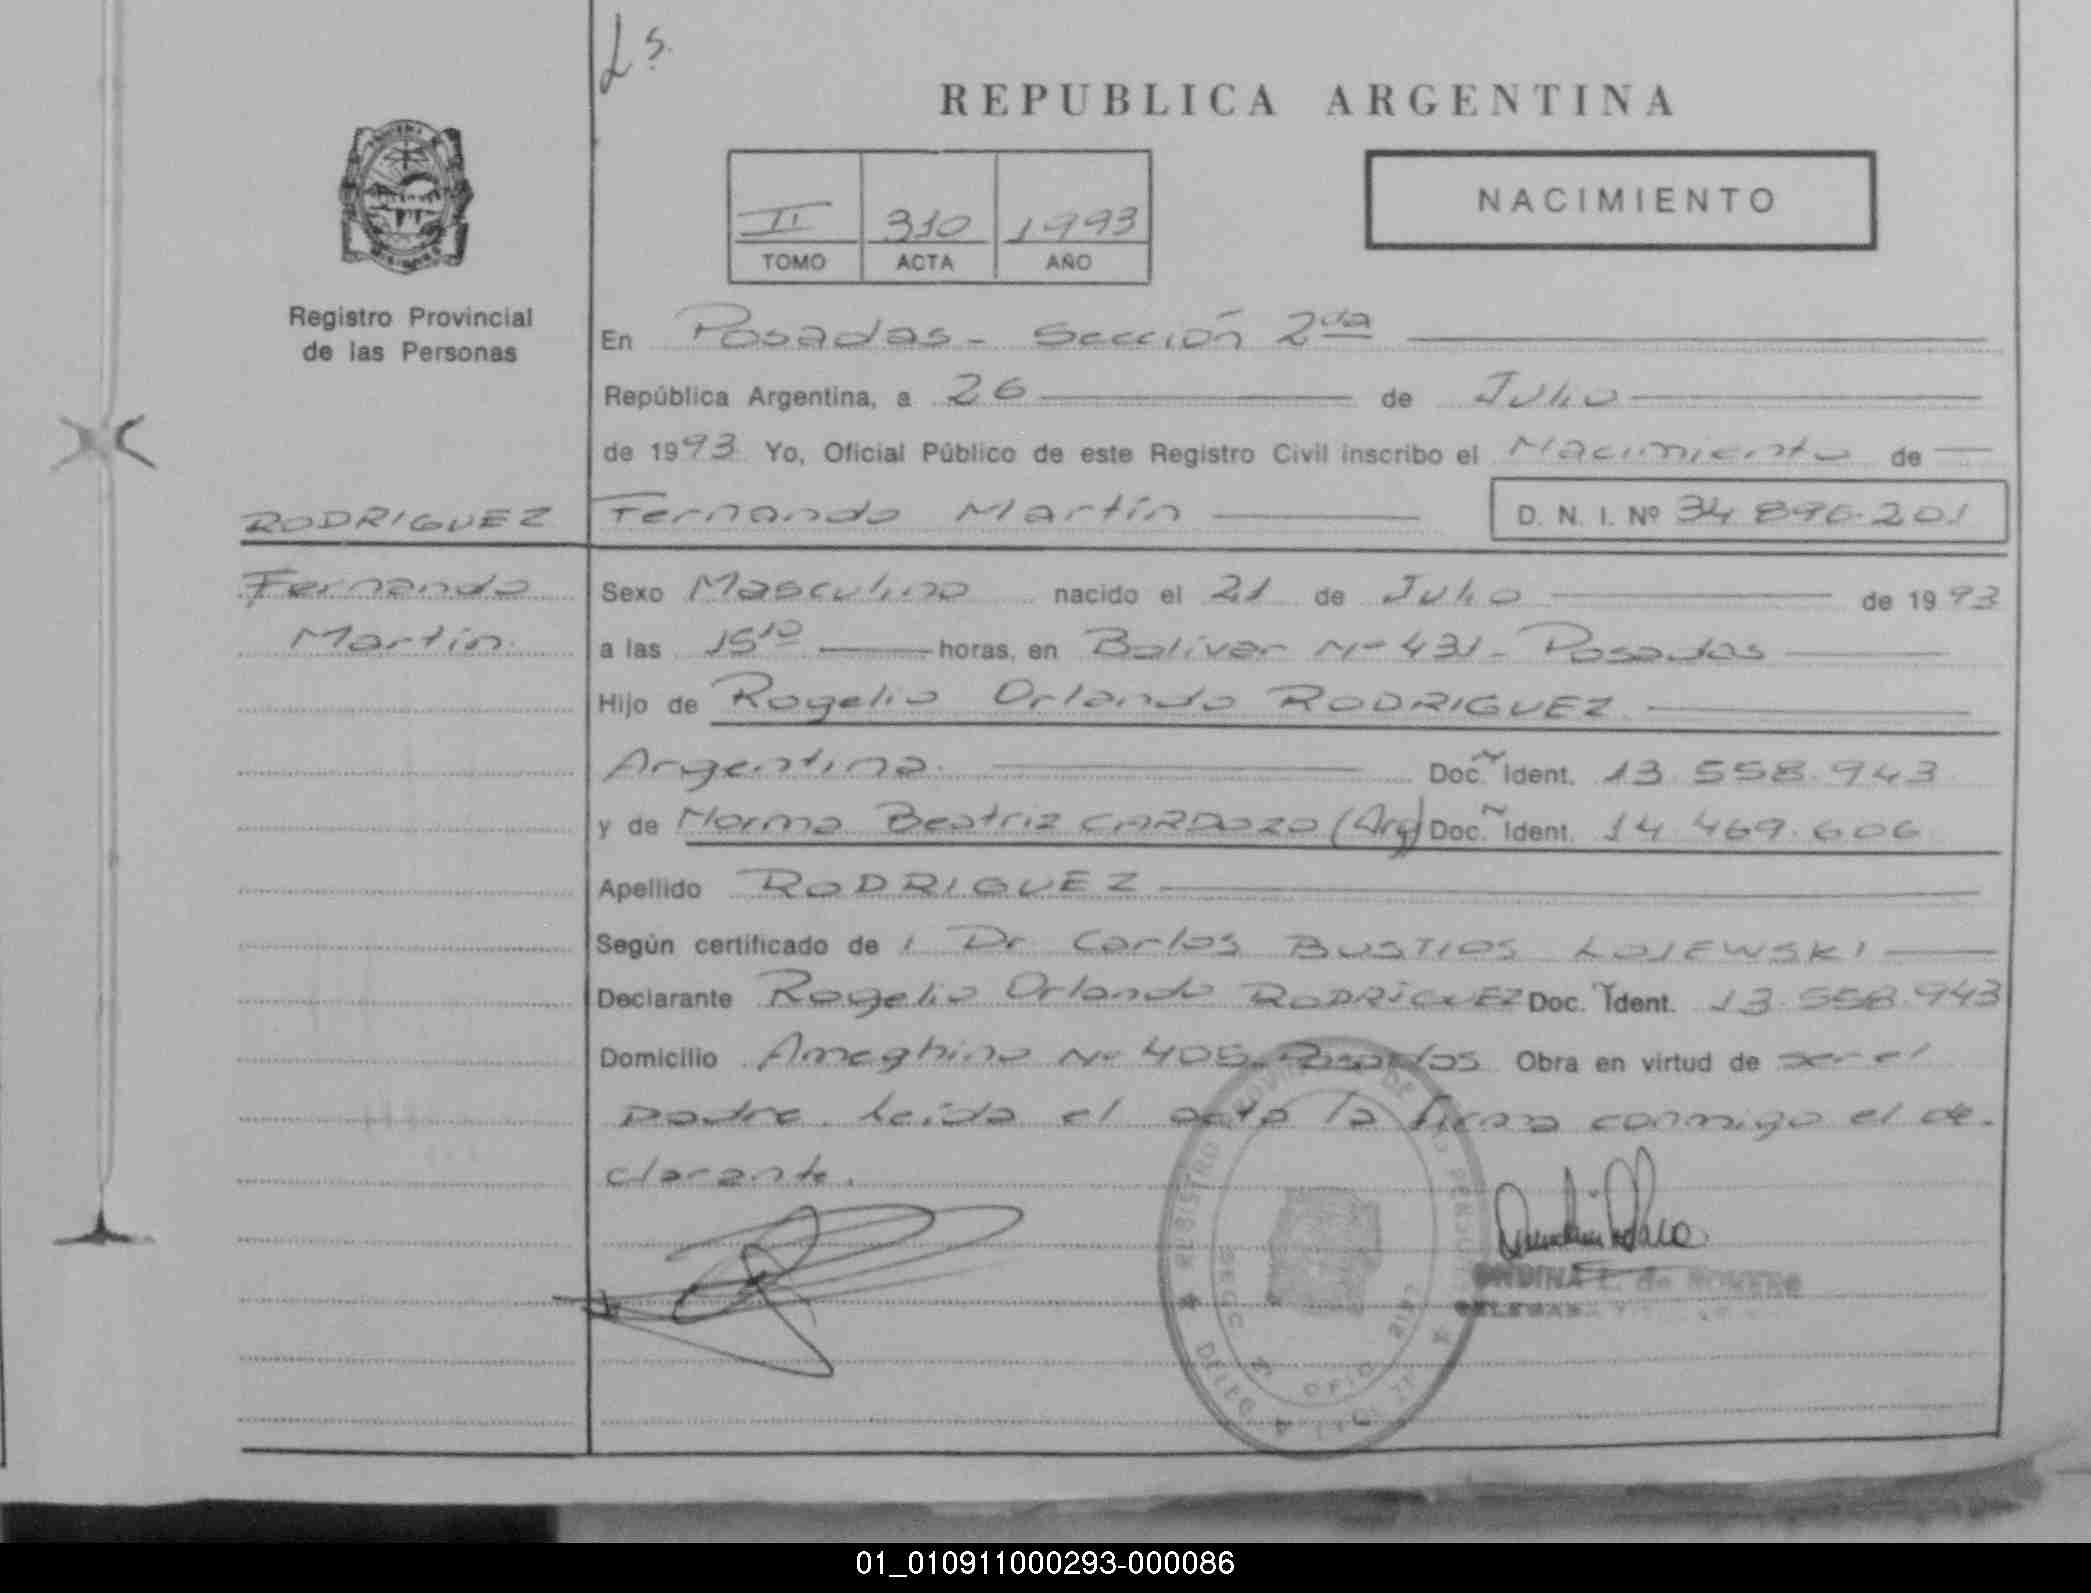 Ls.
REPUBLICA ARGENTINA
NACIMIENTO
II 310 1993
TOMO ACTA AÑO
Registro Provincial
de las Personas
En Posadas - Sección 2da
República Argentina, a 26 de Julio
de 1993 Yo, Oficial Público de este Registro Civil inscribo el Nacimiento de
RODRIGUEZ Fernando Martín D. N. I. Nº 34 896.201
Fernando
Martín.
Sexo Masculino nacido el 21 de Julio de 1993
a las 15 10 horas, en Bolívar Nº 431 - Posadas
Hijo de Rogelio Orlando RODRIGUEZ
Argentina. Doc. Ident. 13.558.943
y de Norma Beatriz CARDOZO (Arg) Doc. Ident. 14.469.606
Apellido RODRIGUEZ
Según certificado de Dr Carlos BUSTIOS LOJEWSKI
Declarante Rogelio Orlando RODRIGUEZ Doc. Ident. 13.558.943
Domicilio Ameghino Nº 405 - Posadas Obra en virtud de ser el
padre. Leída el acta la firma conmigo el de-
clarante.
REGISTRO DE LAS PERSONAS
ONDINA E. de ROMERO
01_010911000293-000086